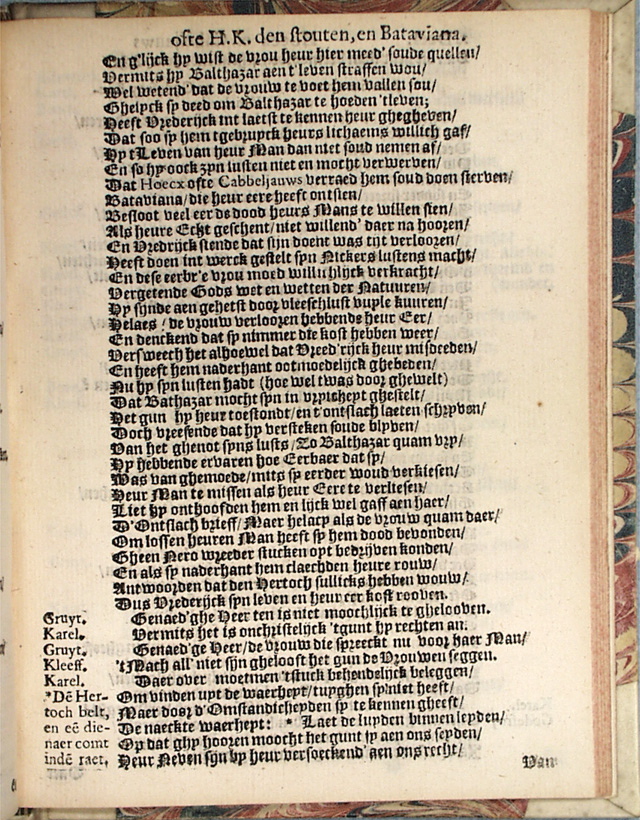 ofte H.K. den stouten, en Bataviana.
En g'lijck hy wist de vrou heur hier meed' soude quellen/
Vermits hy Balthazar aen t'leven straffen wou/
Wel wetend' dat de vrouw te voet hem vallen sou/
Ghelyck sp deed om Balthazar te hoeden tleven;
Heeft Vrederijck int laetst te kennen heur ghegheven/
Dat soo sp hem tgebruyck heurs lichaems willich gaf/
Hy t Leven van heur Man dan niet soud nemen af/
En so hy oock zyn lusten niet en mocht verwerven/
Dat Hoecx ofte Cabbeljauws verraed hem soud doen sterven/
Bataviana/die heur eere heeft ontsien/
Besloot veel eer de dood heurs Mans te willen sien/
Als heure Echt geschent/niet willend' daer na hooren/
En Vredrijck siende dat sijn doent was tijt verlooren/
Heeft doen int werck gestelt syn Nickers lustens macht/
En dese eerbr'e vrou moed willichlijck verkracht/
Vergetende Gods wet en wetten der Natuuren/
Hy sijnde aen gehetst door vleeschlust vuyle kuuren/
Helaes / de vrouw verlooren hebbende heur Eer/
En denckend dat sp nimmer die kost hebben weer/
Versweech het alhoewel dat Vreed'rijck heur misdeeden/
En heeft hem naderhant ootmoedelijck ghebeden/
Nu hy syn lusten hadt (hoe wel twas door ghewelt)
Dat Bathazar mocht syn in vrycheyt ghestelt/
Het gun hy heur toestondt/en t'ontslach laeten schryven/
Doch vreesende dat hy versteken soude blyven/
Van het ghenot syns lusts/Zo Balthazar quam vry/
Hy hebbende ervaren hoe Eerbaer dat sy/
Was van ghemoede/mits sp eerder woud verkiesen/
Heur Man te missen als heur Eere te verliesen/
Liet hy onthoofden hem en lijck wel gaff aen haer/
D'Ontslach brieff/Maer helacy als de vrouw quam daer/
Om lossen heuren Man heeft sp hem dood bevonden/
Gheen Nero wreeder stucken opt bedrijven konden/
En als sp naderhant hem claechden heure rouw/
Antwoorden dat den Hertoch sullicks hebben wouw/
Dus Vrederijck syn leven en heur eer kost rooven.
Gruyt. Genaed'ghe Heer ten is niet moochlijck te ghelooven.
Karel. Vermits het is onchristelijck 'tgunt hy rechten an.
Gruyt. Genaed'ge Heer/de vrouw die spreeckt nu voor haer Man/
Kleeff. 't Mach all' niet sijn gheloost het gun de Vrouwen seggen.
Karel. Daer over moetmen 'tstuck behendelijck beleggen/
Om vinden upt de waerheyt/tuyghen sp niet heeft/
Maer door d'Omstandicheyden sp te kennen gheeft/
De naeckte waerheyt: * Laet de luyden binnen leyden/
Op dat ghy hooren moocht het gunt sy aen ons seyden/
Heur Neven sijn by heur versoeckend' aen ons recht/
*Dē Her-
toch belt,
en eē die-
naer comt
indē raet.
Van